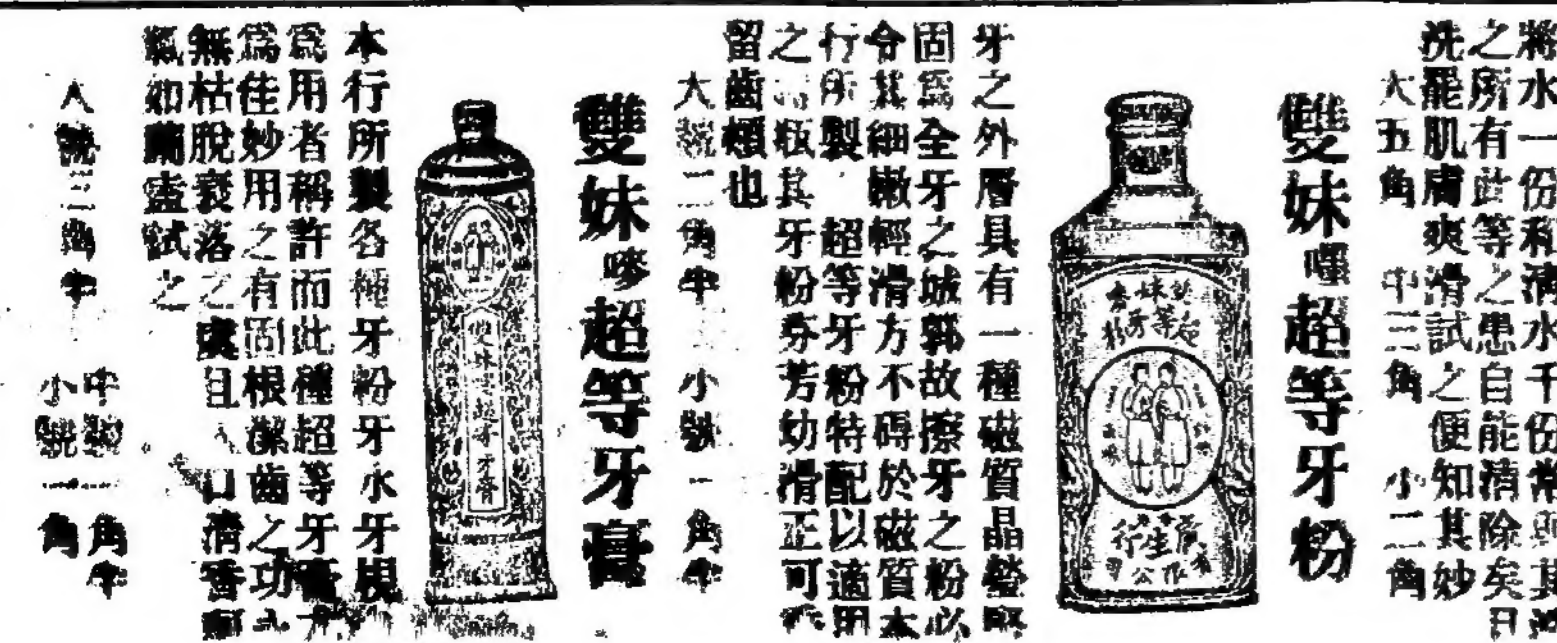 將水一份和清水千份常
之所有此等之患自能清除矣且
洗罷肌膚爽滑試之便知其妙
大五角 中三角 小二角
雙妹嚜超等牙粉
雙妹
超等牙
粉
廣生行
有限公司
牙之外層具有一種磁質晶瑩堅
固爲全牙之城郭故擦牙之粉必
令其細嫩輕滑方不碍於磁質本
行所製 超等牙粉特配以適用
之 瓶其牙粉芬芳幼滑正可
留齒頰也
大號二角半 小號一角半
雙妹嚜超等牙膏
雙妹 超等牙膏
本行所製各種牙粉牙水牙根
爲用者稱許而此種超等牙膏
爲佳妙用之有固根潔齒之功
無枯脫衰落之虞且 口清香
試之
大號三角半
中號 角半
小號一角